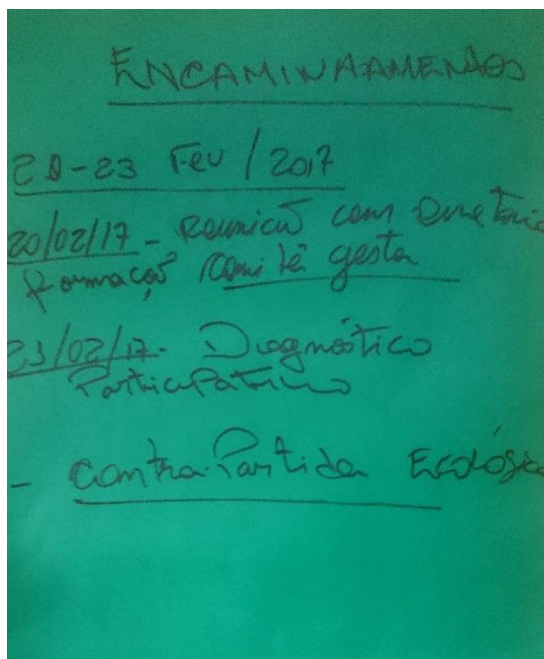 ENCAMINAAMENTOS
20-23 FEV / 2017
20/02/17 - Reunião com
Formação Comitê gestor
23/02/17 - Diagnóstico
Participativo
- Contra-Partida Ecológica